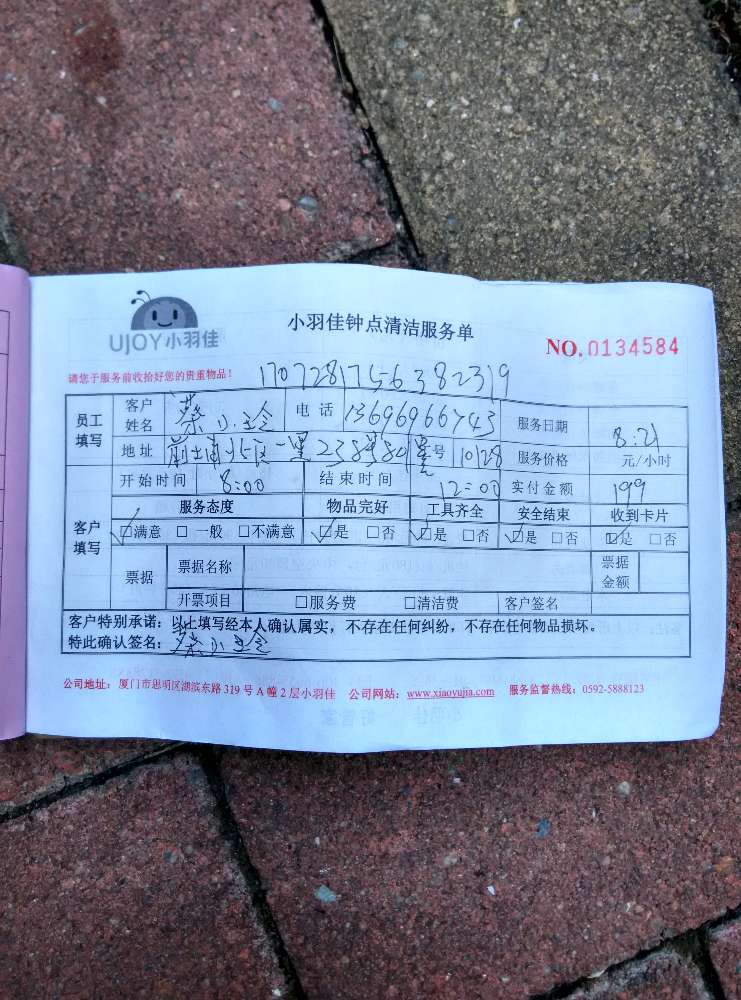 UJOY小羽佳
小羽佳钟点清洁服务单
NO.0134584
请您于服务前收拾好您的贵重物品!
1707281756382319
员工填写 客户姓名 蔡小玲 电话 13696966743 服务日期 8:21
地址 前埔南北区一里238号 10128 服务价格 元/小时
开始时间 8:00 结束时间 12:00 实付金额 199
客户填写 服务态度 物品完好 工具齐全 安全结束 收到卡片
☑满意 □一般 □不满意 ☑是 □否 ☑是 □否 ☑是 □否 ☑是 □否
票据 票据名称 票据金额
开票项目 □服务费 □清洁费 客户签名
客户特别承诺:以上填写经本人确认属实,不存在任何纠纷,不存在任何物品损坏。
特此确认签名:蔡小玲
公司地址:厦门市思明区湖滨东路319号A幢2层小羽佳 公司网站:www.xiaoyujia.com 服务监督热线:0592-5888123